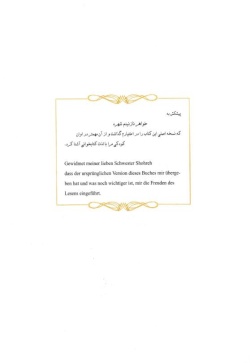 پیشکش به
خواهر نازنینم شهره
که نسخه اصلی این کتاب را در اختیارم گذاشت و از آن مهمتر در ایران
کودکی مرا با لذت کتابخوانی آشنا کرد.
Gewidmet meiner lieben Schwester Shohreh
dass der ursprünglichen Version dieses Buches mir überge-
ben hat und was noch wichtiger ist, mit die Freuden des
Lesens eingeführt.